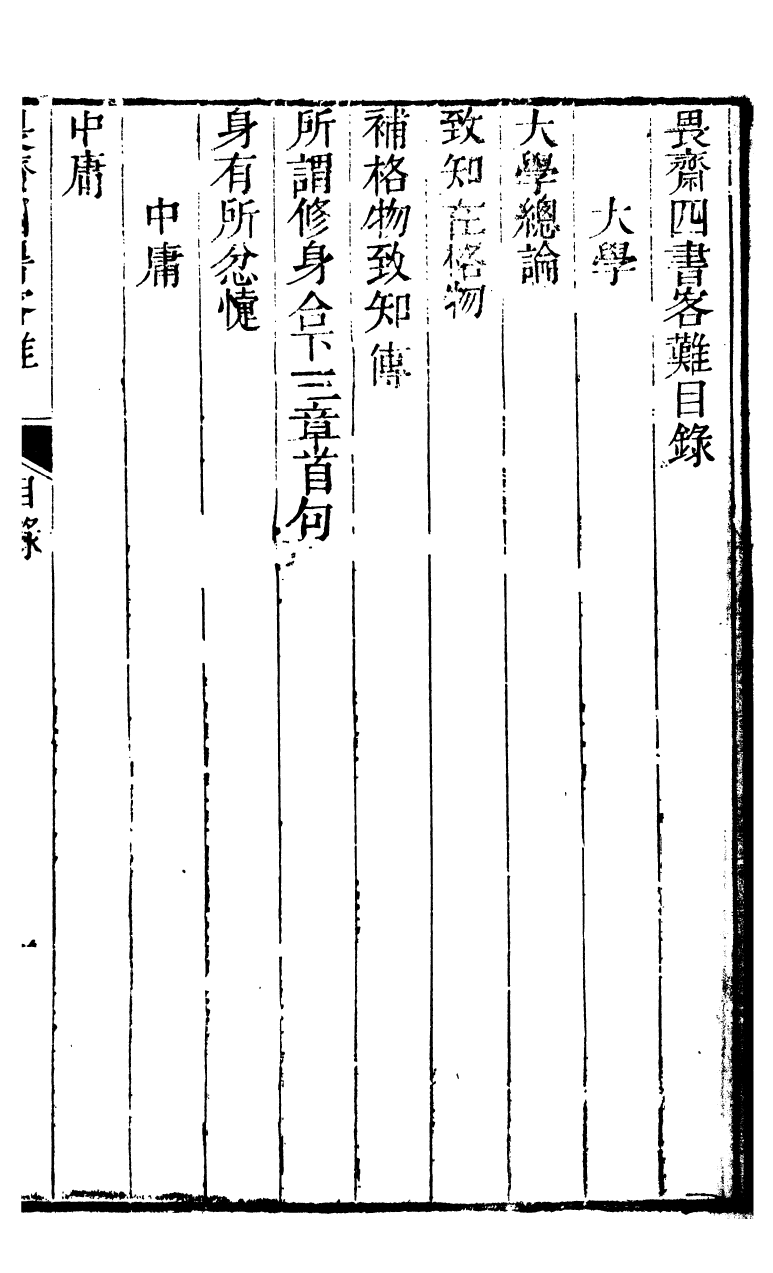 畏齋四書客難目錄
大學
大學總論
致知在格物
補格物致知傳
所謂修身合下三章首句
身有所忿懥
中庸
中庸
目錄